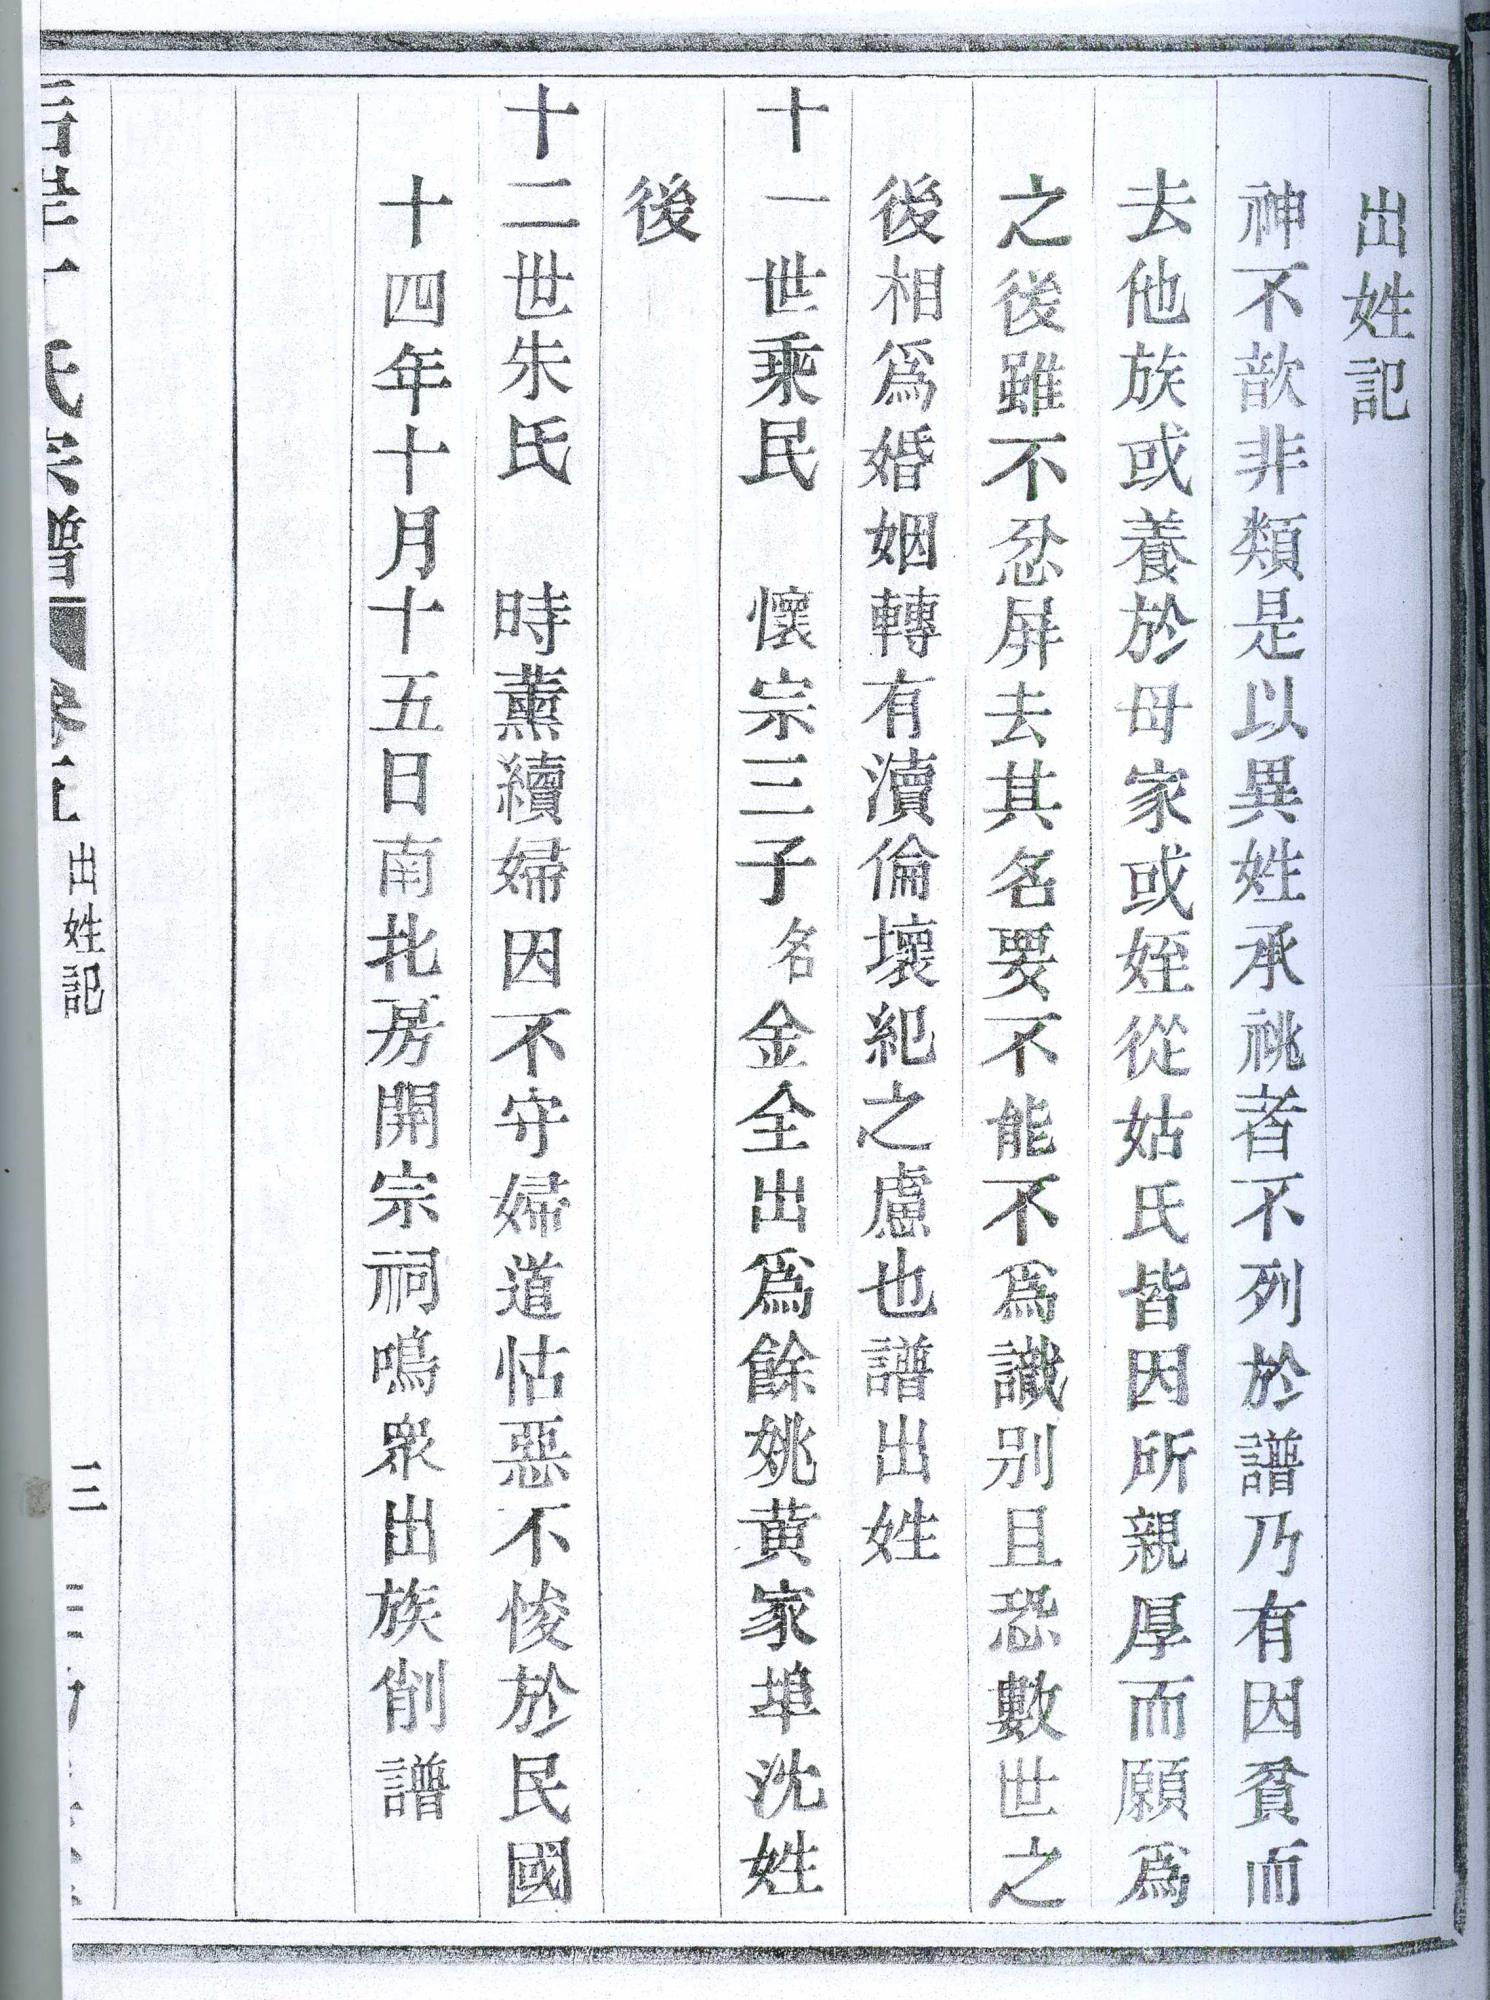 出姓記
神不歆非類是以異姓承祧者不列於譜乃有因貧而
去他族或養於母家或姪從姑氏皆因所親厚而願爲
之後雖不忍屏去其名要不能不爲識别且恐數世之
後相爲婚姻轉有瀆倫壞紀之慮也譜出姓
十一世乘民　懷宗三子名金全出爲餘姚黃家埠沈姓
後
十二世朱氏　時薰續婦因不守婦道怙惡不悛於民國
十四年十月十五日南北房開宗祠鳴衆出族削譜
氏宗譜
出姓記
三